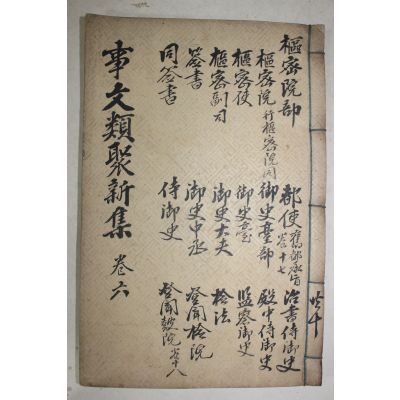 樞密院部 都使 治書侍御史
樞密院 御史臺部 殿中侍御史
行樞密院同
卷十七
樞密使 御史臺 監察御史
樞密副司 御史大夫 檢法
簽書 御史中丞 登聞檢院
同簽書 侍御史 登聞鼓院 卷十八
事文類聚新集 卷六